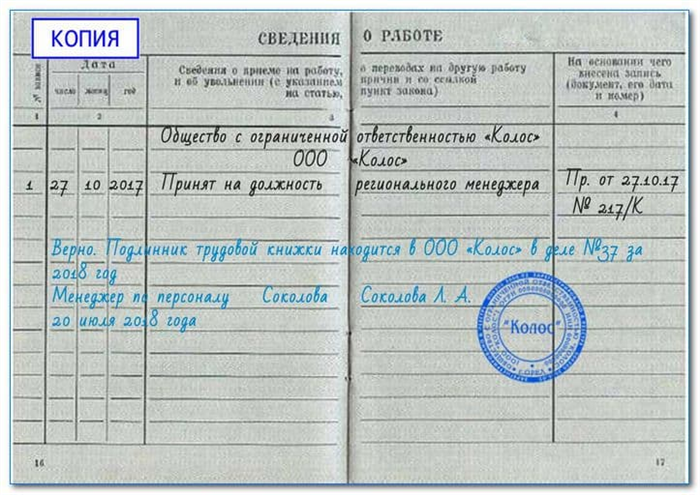 КОПИЯ
СВЕДЕНИЯ О РАБОТЕ
№ записи
Дата
число месяц год
Сведения о приеме на работу, о переходах на другую работу
и об увольнении (с указанием причин и со ссылкой
на статью, пункт закона)
На основании чего
внесена запись
(документ, его дата
и номер)
1 2 3 4
Общество с ограниченной ответственностью «Колос»
ООО «Колос»
1 27 10 2017 Принят на должность регионального менеджера Пр. от 27.10.17
№ 217/К
Верно. Подлинник трудовой книжки находится в ООО «Колос» в деле №37 за
2018 год
Менеджер по персоналу Соколова Соколова Л. А.
20 июля 2018 года
"Колос"
16 17